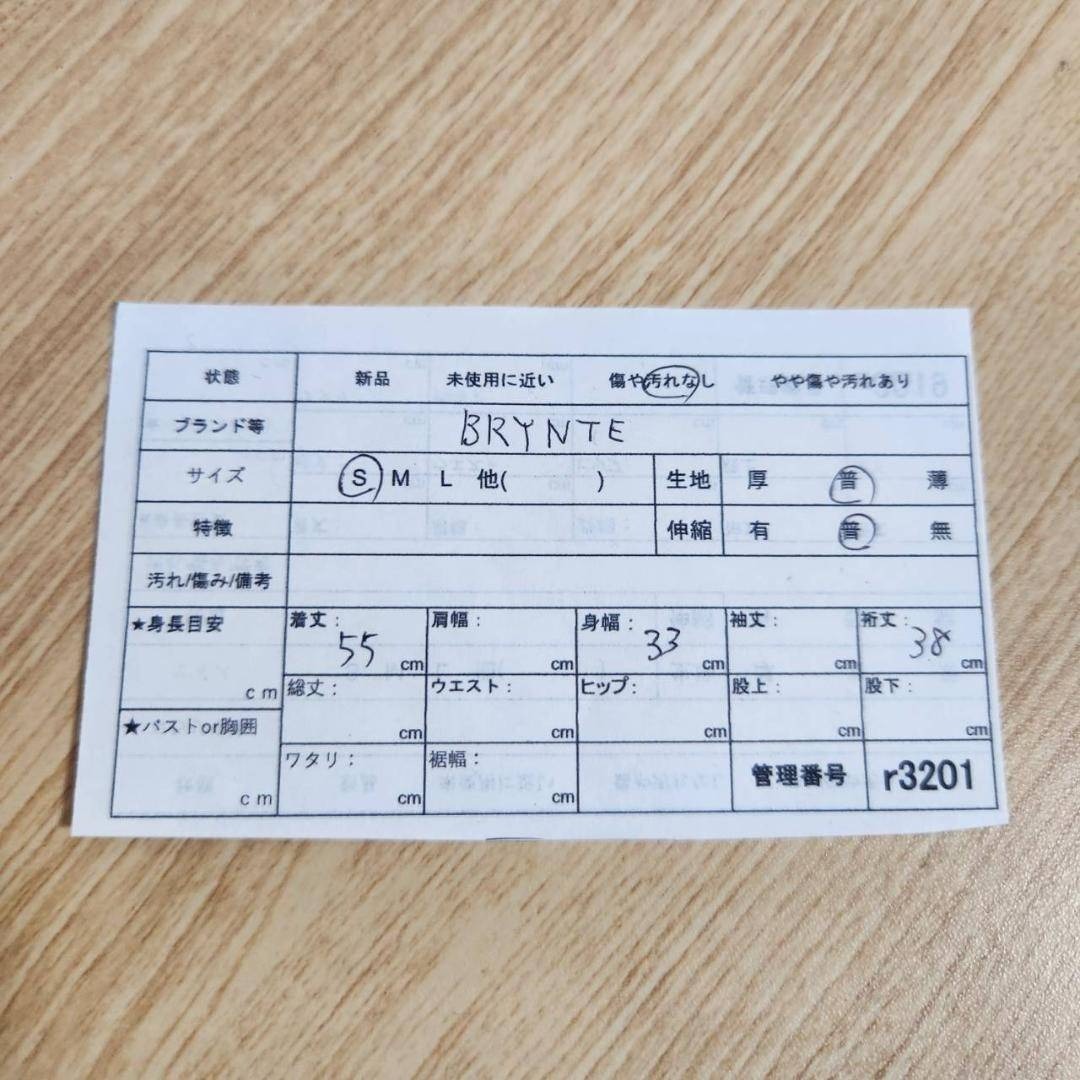 状態 新品 未使用に近い 傷や汚れなし やや傷や汚れあり
ブランド等 BRYNTE
サイズ S M L 他( ) 生地 厚 普 薄
特徴 伸縮 有 普 無
汚れ/傷み/備考
★身長目安 cm
★バストor胸囲 cm
着丈: 55 cm 肩幅: cm 身幅: 33 cm 袖丈: cm 裄丈: 38 cm
総丈: cm ウエスト: cm ヒップ: cm 股上: cm 股下: cm
ワタリ: cm 裾幅: cm 管理番号 r3201